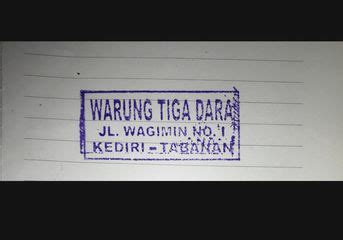 WARUNG TIGA DARA
JL. WAGIMIN NO. 1
KEDIRI - TABANAN